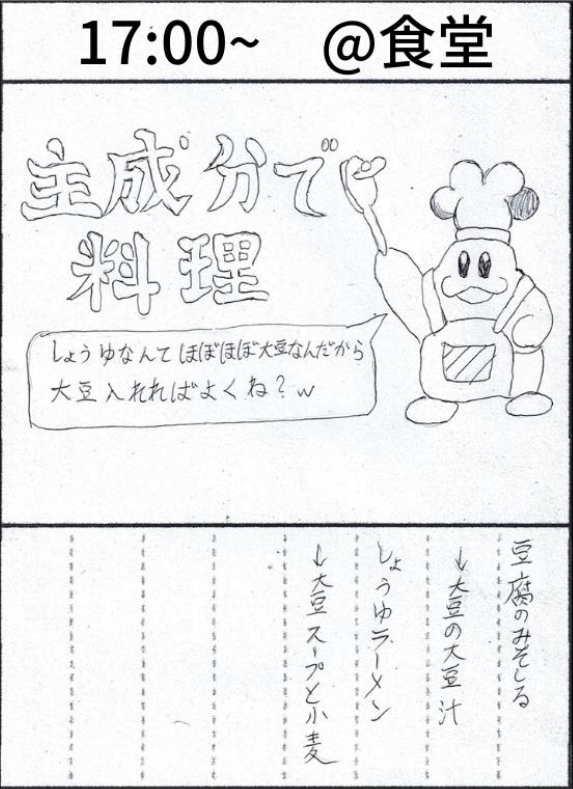 17:00~ @食堂
主成分で
料理
しょうゆなんてほぼほぼ大豆なんだから
大豆入れればよくね?w
豆腐のみそしる
↓大豆の大豆汁
しょうゆラーメン
↓大豆スープと小麦